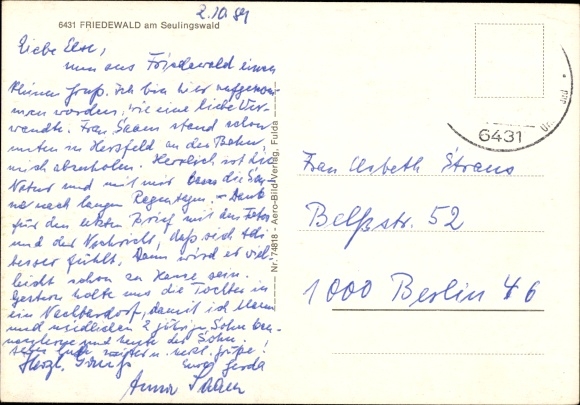 2.10.84
6431 FRIEDEWALD am Seulingswald
Liebe Else,
nun aus Friedewald einen
kleinen Gruß. Ich bin hier aufgenom-
men worden, wie eine liebe Ver-
wandte. Frau Saam stand schon
unten in Hersfeld an der Bahn,
mich abzuholen. Herrlich ist die
Natur und mit mir kam die Son-
ne nach langen Regentagen. – Dank
für den letzten Brief mit den Fotos
und der Nachricht, daß sich
besser fühlt. Dann wird er viel-
leicht schon zu Hause sein.
Gestern holte uns die Tochter in
ein Nachbardorf, damit ich Mann
und niedlichen 2 jährigen Sohn ken-
nenlerne und heute der Sohn.
alles Gute weiter u. herzl. Grüße!
Herzl. Gruß Eure Gerda
Anna Saam
Nr. 74818 - Aero-Bild-Verlag, Fulda
6431
Frau Elsbeth Straus
Belßstr. 52
1000 Berlin 46